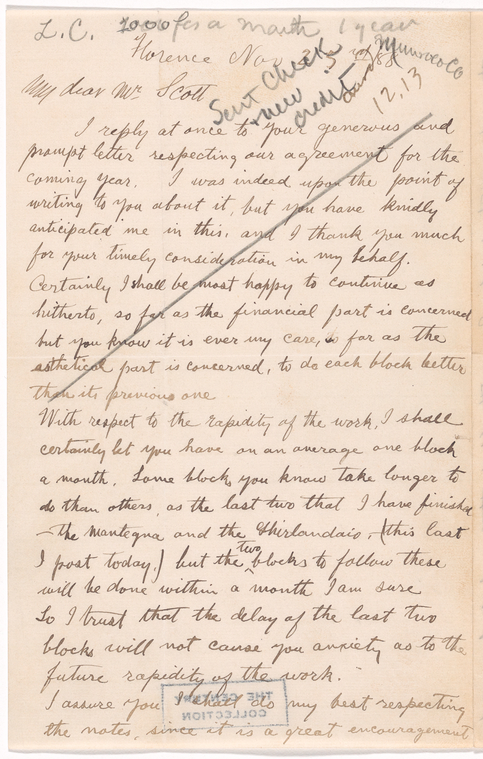 L.C. 1000 fcs a month 1 year
Florence Nov. 88
Sent check
new
credit
Munroe & Co
12.13
My dear Mr Scott
I reply at once to your generous and
prompt letter respecting our agreement for the
coming year. I was indeed upon the point of
writing to you about it, but you have kindly
anticipated me in this, and I thank you much
for your timely consideration in my behalf.
Certainly I shall be most happy to continue as
hitherto, so far as the financial part is concerned
but you know it is ever my care, so far as the
asthetical part is concerned, to do each block better
than its previous one
With respect to the rapidity of the work, I shall
certainly let you have on an average one block
a month. Some blocks you know take longer to
do than others, as the last two that I have finished
- the Mantegna and the Ghirlandaio - (this last
I post today.) but the two blocks to follow these
will be done within a month I am sure
So I trust that the delay of the last two
blocks will not cause you anxiety as to the
future rapidity of the work.
I assure you I shall do my best respecting
the notes, since it is a great encouragement
THE CENTURY
COLLECTION